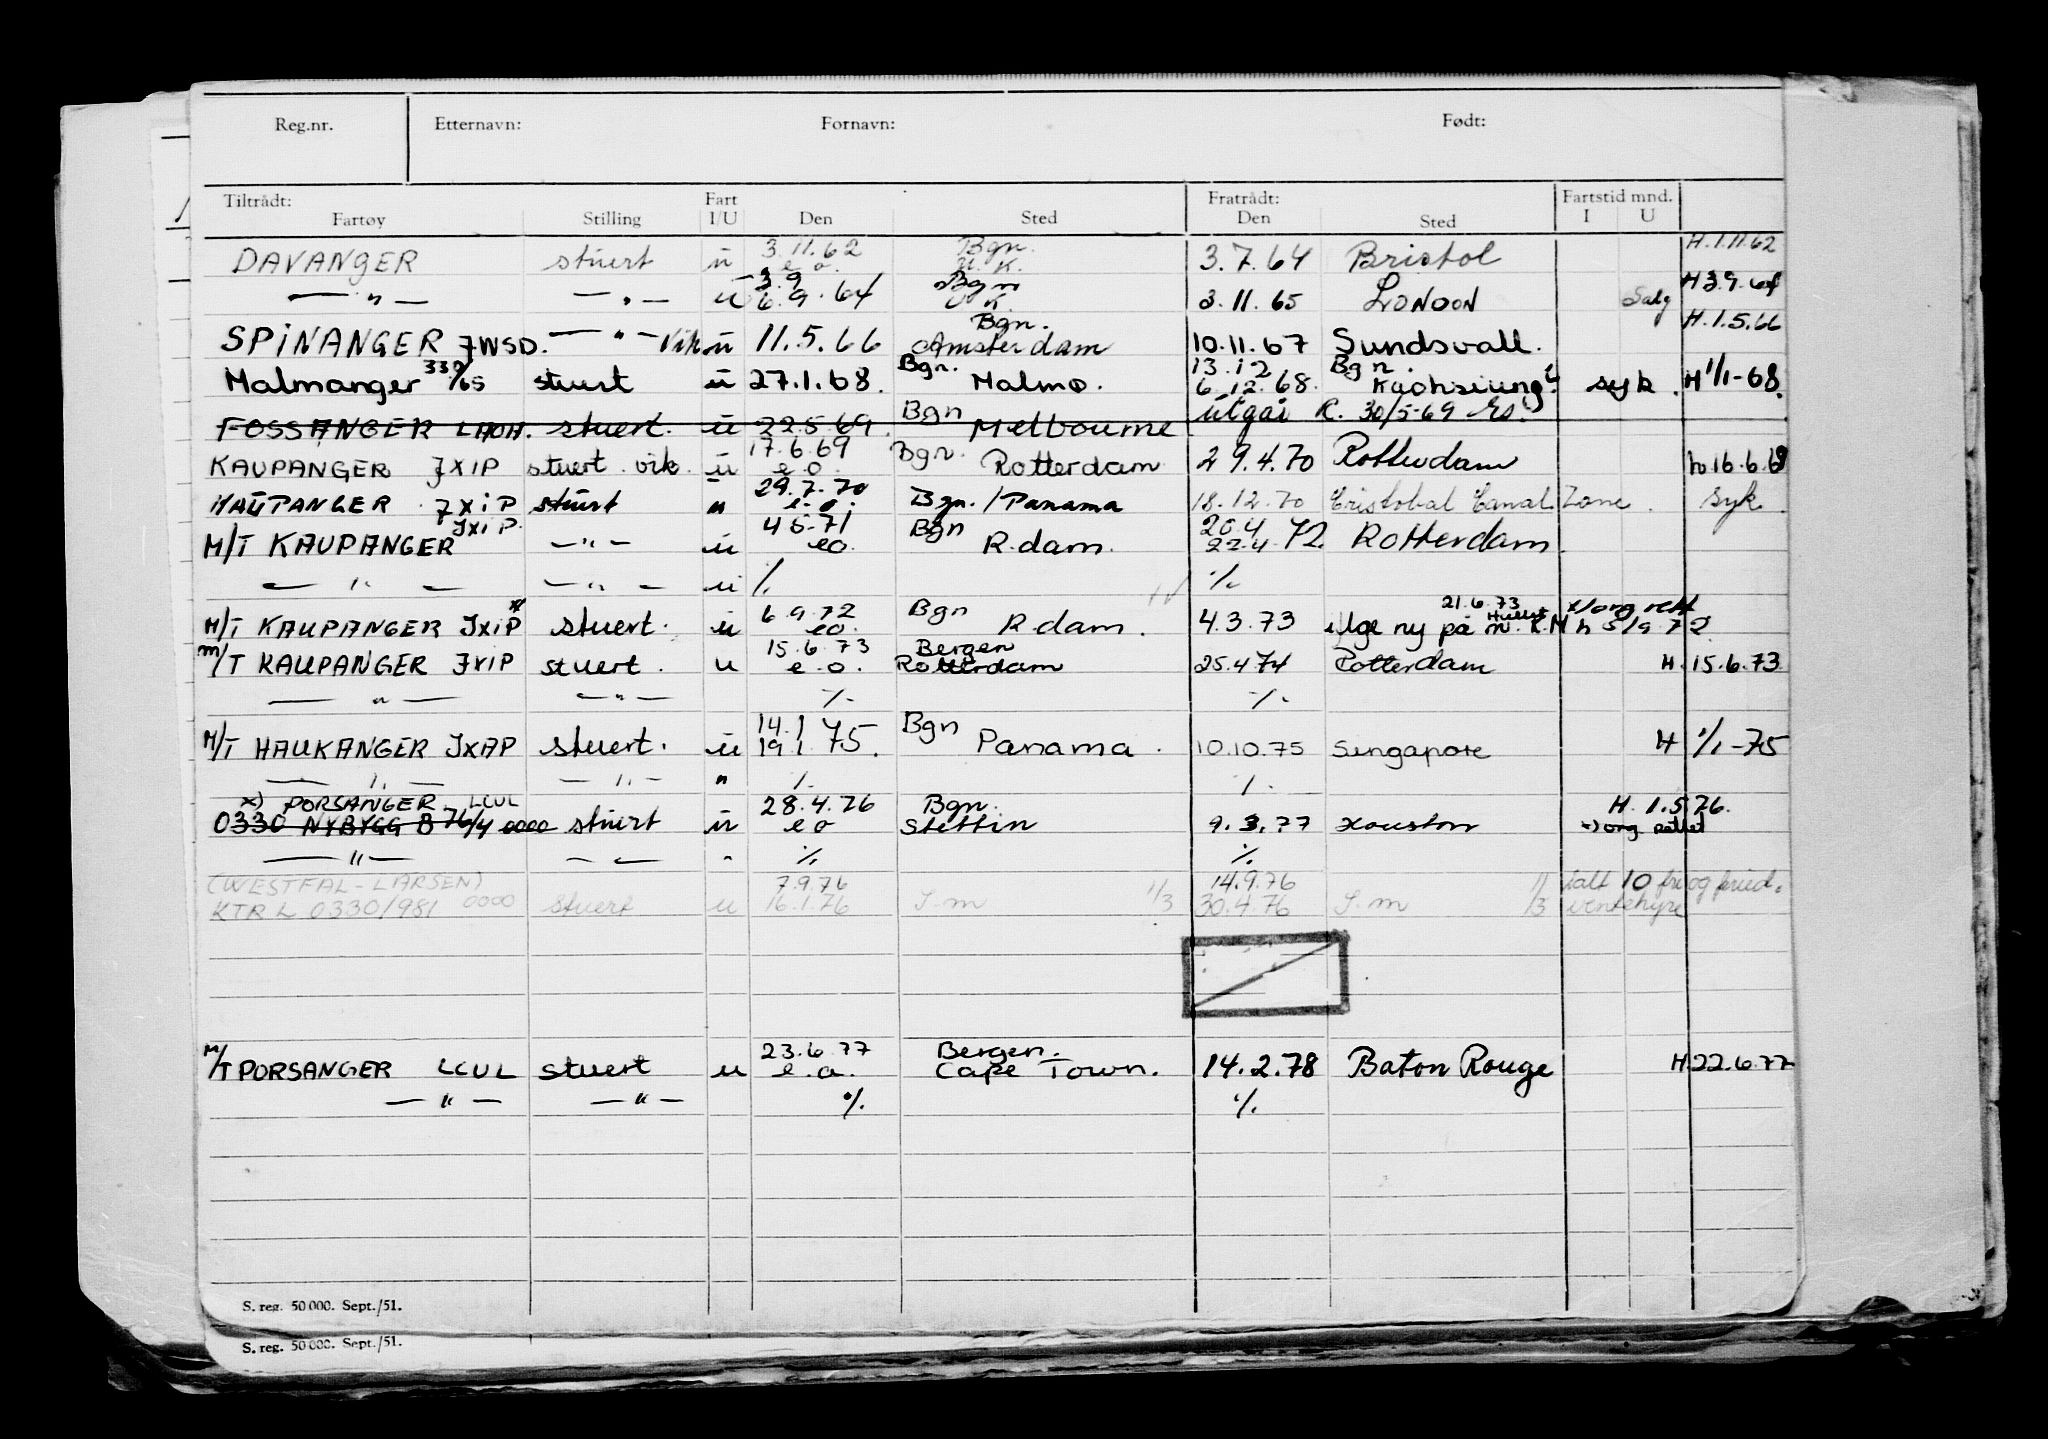 Reg.nr. Etternavn: Fornavn: Født:
Tiltrådt: Fart Fratrådt: Fartstid mnd.
Fartøy Stilling I/U Den Sted Den Sted I U
3.11.62 Bgn. H.1.11.62
DAVANGER stuert u e o. U.K. 3.7.64 Bristol
3.9 Bgn H 3.9.64
— " — — " — u 6.9.64 U K 3.11.65 LONDON Salg
Bgn. H.1.5.66
SPINANGER JWSD. — " — Vik u 11.5.66 Amsterdam 10.11.67 Sundsvall.
330 Bgn. 13.12 Bgn.
Malmanger /65 stuert u 27.1.68. Malmø. 6.12.68. Kaohsiung syk. H 1/1-68.
Bgn utgår R. 30/5-69
FOSSANGER LHOH. stuert. u 22.5.69. Melbourne
17.6.69 Bgn.
KAUPANGER JXIP stuert vik. u e.o. Rotterdam 29.4.70 Rotterdam h.16.6.69
29.7.70
KAUPANGER JXIP stuert " e.o. Bgn./Panama 18.12.70 Cristobal Canal Zone. Syk.
JXIP. 4 5.71 Bgn 20.4
M/T KAUPANGER — " — u eo. R.dam. 22.4.72. Rotterdam.
— " — — " — u %. %.
x) 6.9.72 Bgn 21.6.73 x) org rett
M/T KAUPANGER JXIP stuert. u eo. R dam. 4.3.73 ny på m. H h 5/9 72
15.6.73 Bergen
M/T KAUPANGER JXIP stuert. u e.o. Rotterdam 25.4.74 Rotterdam H.15.6.73
— " — — " — %. %.
14.1 Bgn
M/T HAUKANGER JXAP stuert. u 19.1.75. Panama. 10.10.75 Singapore H 1/1-75
— " — — " — " %. %.
x) PORSANGER LCUL 28.4.76 Bgn. H. 1.5.76.
0330 NYBYGG B 76/4 0000 stuert u e o Stettin 9.3.77 Houston x) org rettet
— " — — " — %. %.
(WESTFAL-LARSEN) 7.9.76 14.9.76 ialt 10 fri og fried.
KTR L 0330/981 0000 stuert u 16.1.76 S.m 1/3 30.4.76 S.m 1/3 ventehyre
23.6.77 Bergen.
M/T PORSANGER LCUL stuert u e.o. Cape Town. 14.2.78 Baton Rouge H.22.6.77
— " — — " — %. %.
S. reg. 50 000. Sept./51.
S. reg. 50 000. Sept./51.